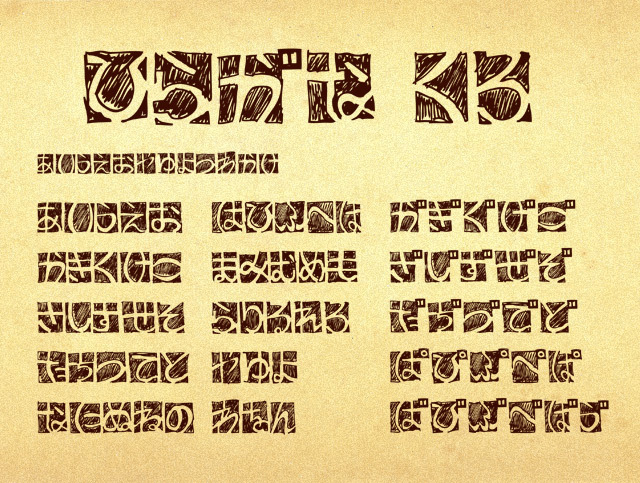 ひらがな くろ
ぁぃぅぇぉゃゅょっゎゕゖ
あいうえお はひふへほ がぎぐげご
かきくけこ まみむめも ざじずぜぞ
さしすせそ らりるれろ だぢづでど
たちつてと やゆよ ぱぴぷぺぽ
なにぬねの わをん ばびぶべぼゔ